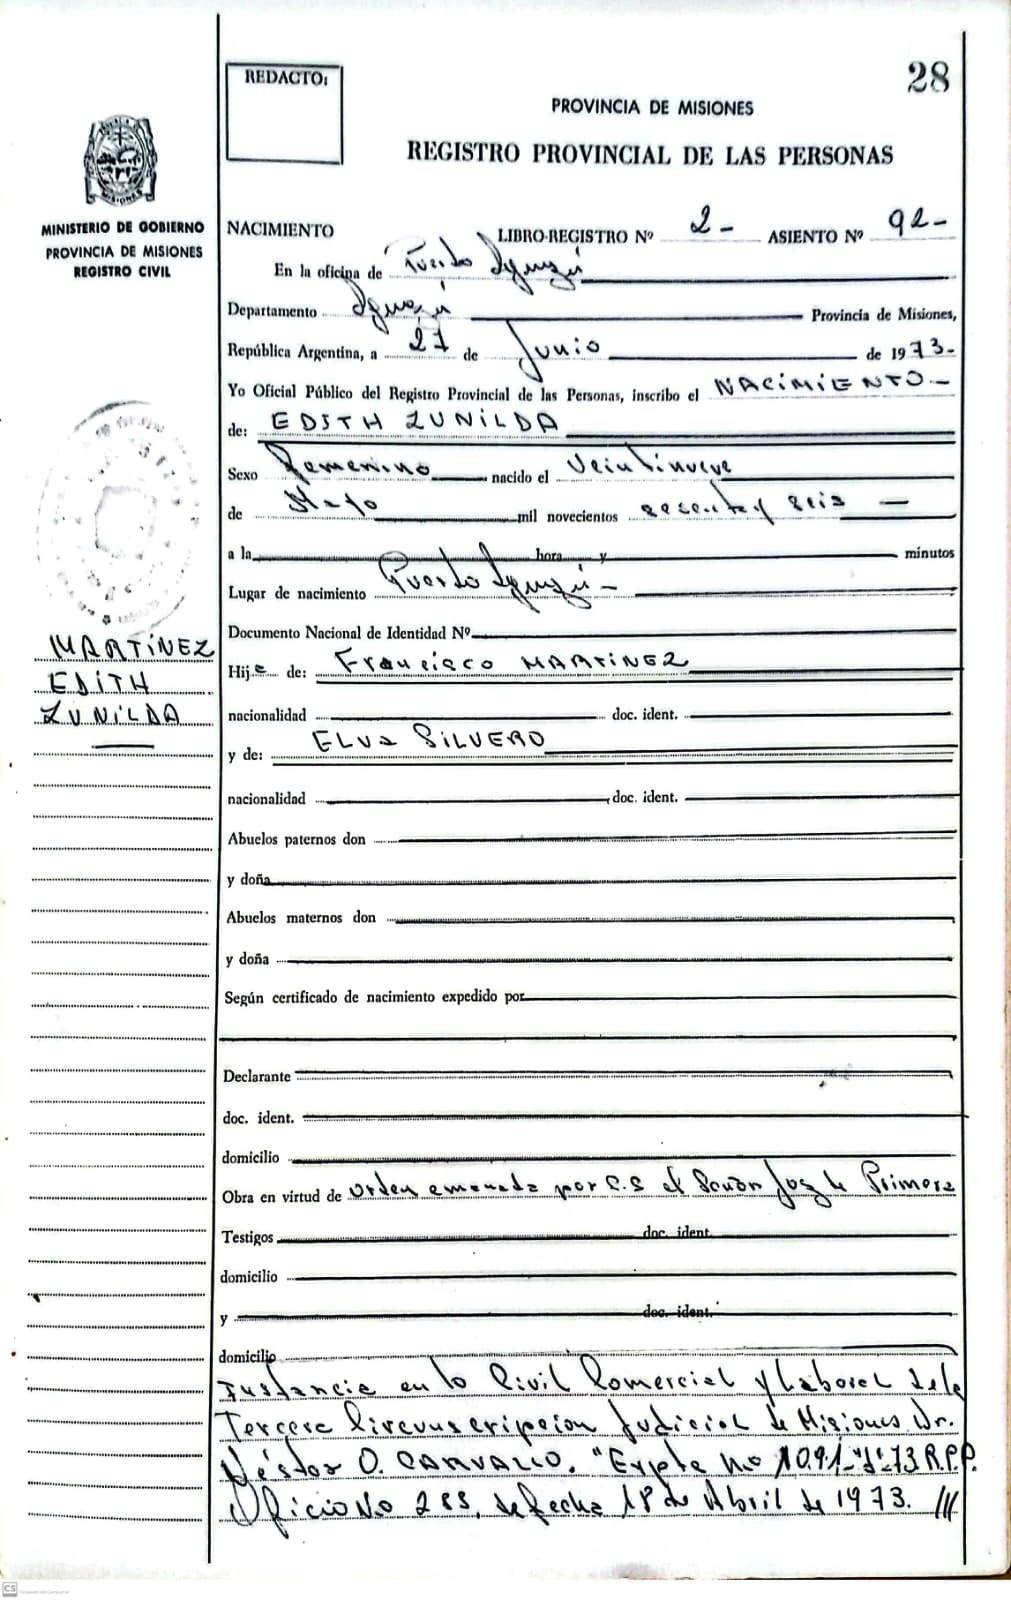 28
REDACTO:
PROVINCIA DE MISIONES
REGISTRO PROVINCIAL DE LAS PERSONAS
MINISTERIO DE GOBIERNO
PROVINCIA DE MISIONES
REGISTRO CIVIL
NACIMIENTO LIBRO-REGISTRO Nº 2- ASIENTO Nº 92-
En la oficina de Puerto Iguazú
Departamento Iguazú Provincia de Misiones,
República Argentina, a 27 de Junio de 1973-
Yo Oficial Público del Registro Provincial de las Personas, inscribo el NACIMIENTO-
de: EDITH ZUNILDA
Sexo Femenino nacido el Veintinueve
de Mayo mil novecientos sesenta y seis -
a la hora y minutos
Lugar de nacimiento Puerto Iguazú-
Documento Nacional de Identidad Nº
MARTÍNEZ
EDITH
ZUNILDA
Hija de: Francisco MARTINEZ
nacionalidad doc. ident.
y de: ELVA SILVERO
nacionalidad doc. ident.
Abuelos paternos don
y doña
Abuelos maternos don
y doña
Según certificado de nacimiento expedido por
Declarante
doc. ident.
domicilio
Obra en virtud de orden emanada por S.S el Señor Juez de Primera
Testigos doc. ident.
domicilio
y doc. ident.
domicilio
Instancia en lo Civil Comercial y Laboral de la
Tercera Circunscripcion Judicial de Misiones Dr.
Néstor O. CARVALLO. "Expte no 1091- 73 R.P.P.
Oficio No de fecha 18 de Abril de 1973. ///
CS